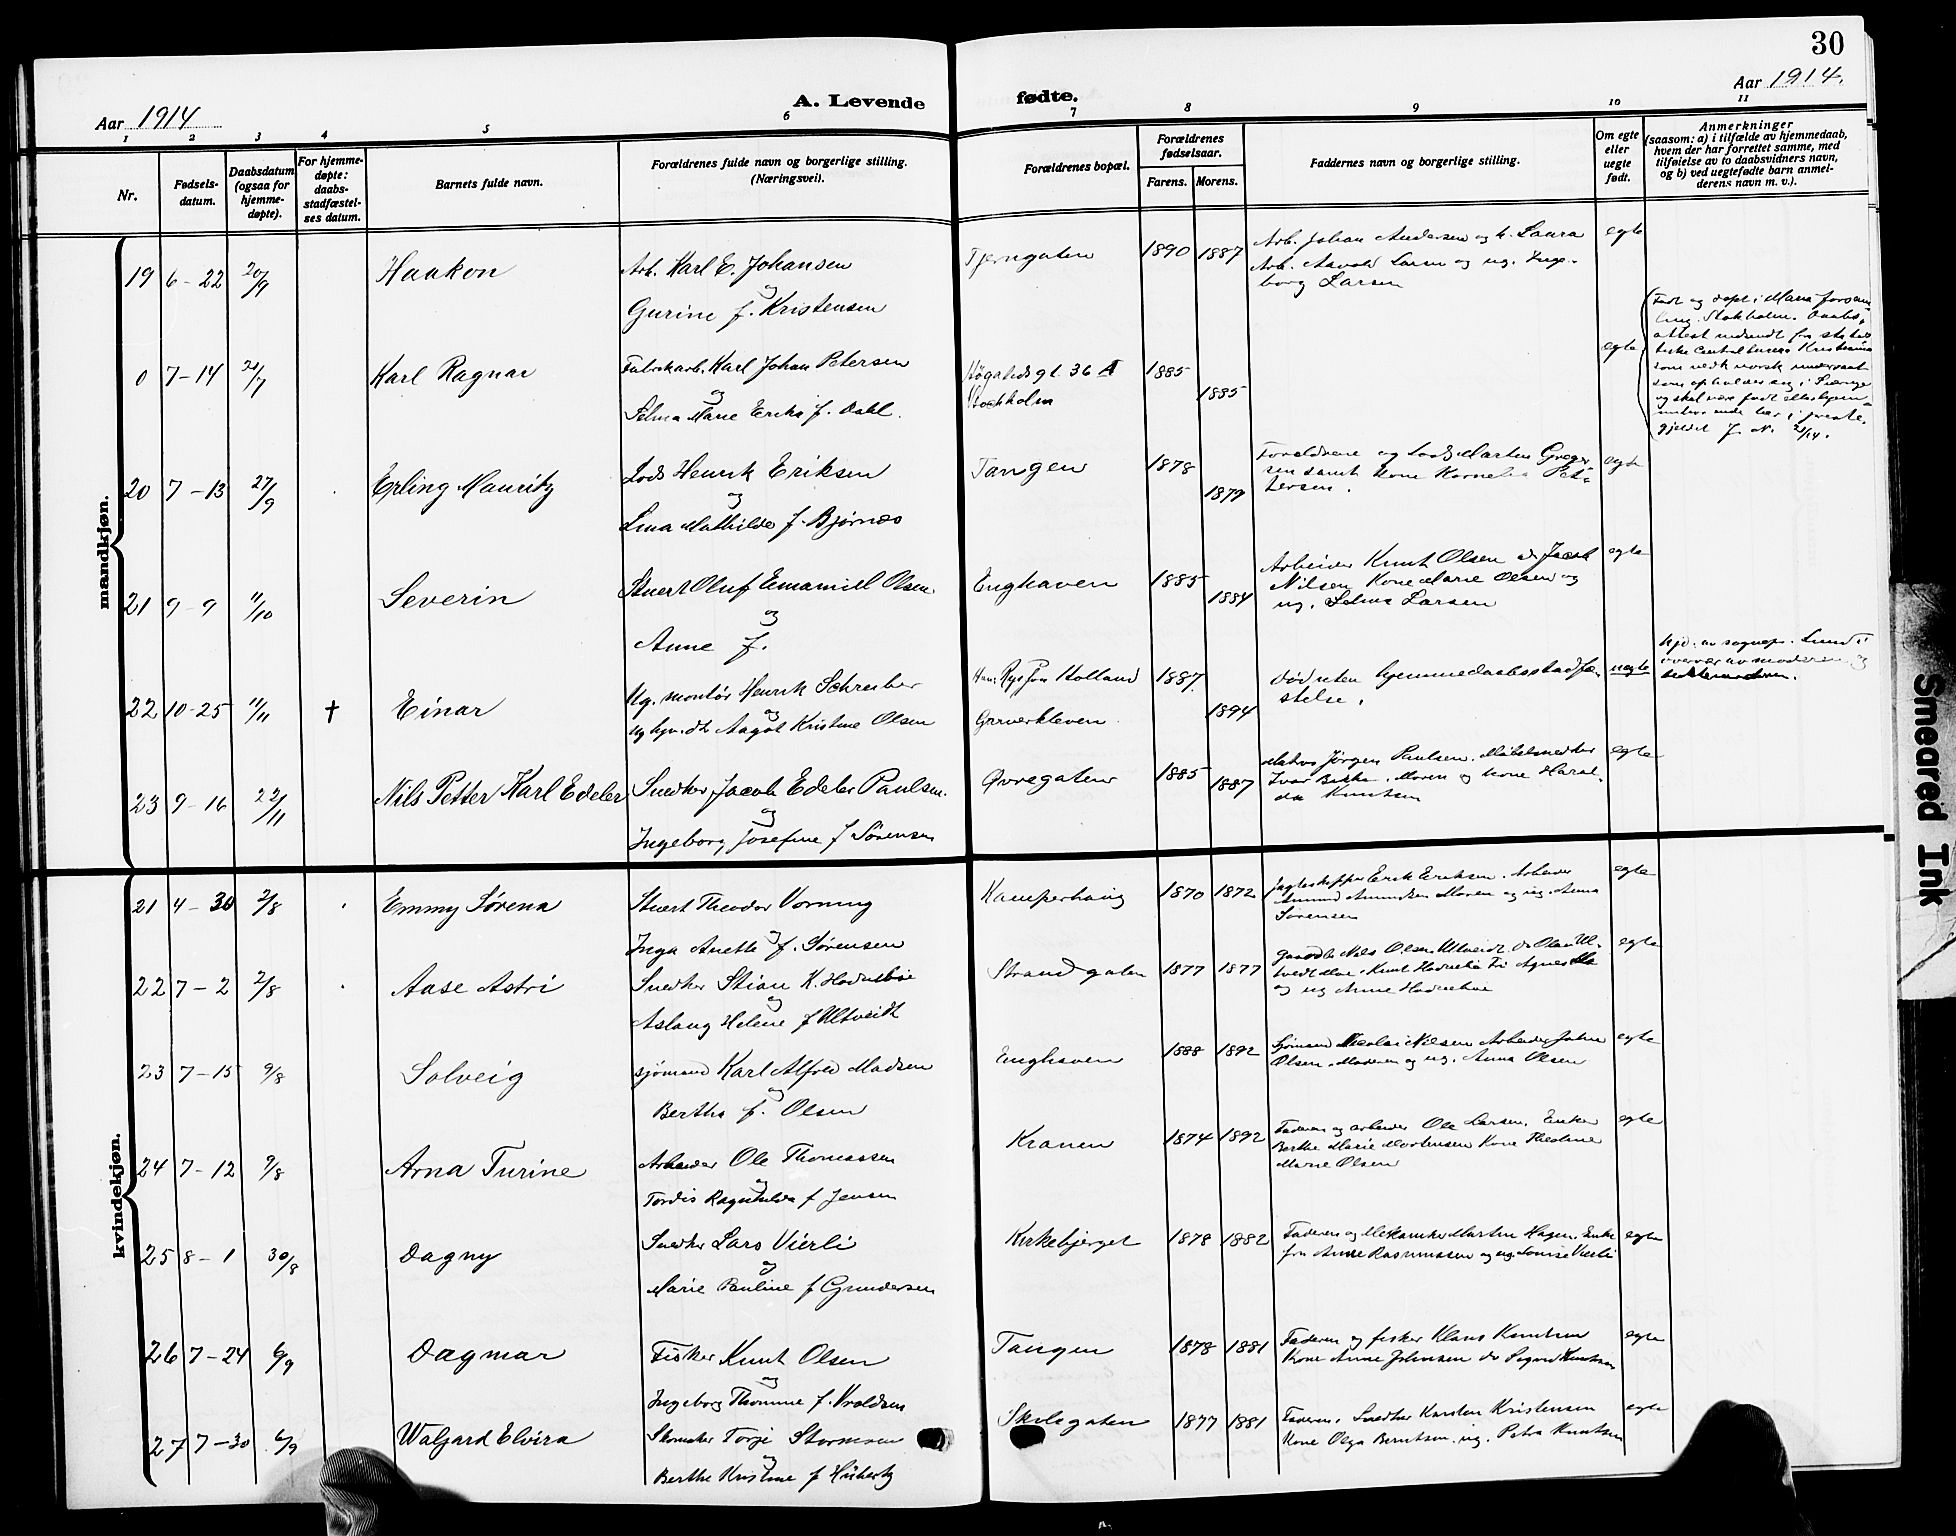 30
Aar 1914
A. Levende
fødte.
Aar 1914.
1 2 3 4 5 6 7 8 9 10 11
Nr.
Fødsels-
datum.
Daabsdatum
(ogsaa for
hjemme-
døpte).
For hjemme-
døpte:
daabs-
stadfæstel-
ses datum.
Barnets fulde navn.
Forældrenes fulde navn og borgerlige stilling.
(Næringsvei).
Forældrenes bopæl.
Forældrenes
fødselsaar.
Farens. Morens.
Faddernes navn og borgerlige stilling.
Om egte
eller
uegte
født.
Anmerkninger
(saasom: a) i tilfælde av hjemmedaab,
hvem der har forrettet samme, med
tilføielse av to daabsvidners navn,
og b) ved uegtefødte barn anmel-
derens navn m. v.).
mandkjøn.
19 6-22 20/9 Haakon
Arb. Karl E. Johansen
og
Gurine f. Kristensen
Tjerngaten 1890 1887
Arb. Johan Andersen og h. Laura
Arb. Larsen og ug. Inge-
borg Larsen
egte
0 7-14 Karl Ragnar
Fabrikarb. Karl Johan Petersen
og
Selma Marie Erika f. Dahl.
Høgalidsgt. 36 A
Stockholm
1885 1885
egte
Født og døpt i Maria forsam-
ling, Stokholm. Daabs-
attest indsendt fra statis-
tiske Centralbureau Kristiania
20 7-13 27/9 Erling Mauritz
Lods Henrik Eriksen
og
Lina Mathilde f. Bjørnes
Tangen 1878 1879
Forældrene og Lods Marten Greger-
sen samt kone Kornelia Pet-
tersen.
egte
21 9-9 11/10 Severin
Stuert Oluf Emaniell Olsen
og
Anne f.
Enghaven 1885 1884
Arbeider Knut Olsen do Jacob
Nilsen Kone Marie Olsen og
ug. Selma Larsen
egte
22 10-25 11/11 † Einar
Ug. montør Henrik Schreiber
og
Aagot Kristine Olsen
Holland
1887. 1894
Død uten hjemmedaabsstadfæ-
stelse.
uegte
23 9-16 22/11 Nils Petter Karl Edeler
Snedker Jacob Edeler Paulsen.
og
Ingeborg Josefine f Sørensen
Øvregaten 1885 1887
Jørgen Paulsen. Møbelsnedker
Ivar Bakke. Moren og kone Haral-
da Knutsen
egte
kvindekjøn.
21 4-30 2/8 Emmy Sørena
Stuert Theodor Vorning
og
Inga Anette f. Sørensen
Kamperhaug 1870 1872
Jagteskipper Erik Eriksen. Arbeider
Amund Amundsen Moren og ug. Anna
Sørensen
egte
22 7-2 2/8 Aase Astri
Snedker Stian K.
og
Aslaug Helene f Ultveidt
Strandgaten 1877 1877
Nils Olsen Ultveidt
egte
23 7-15 9/8 Solveig
Sjømand Karl Alfred Madsen
og
Bertha f. Olsen
Enghaven 1888 1892
Sjømand Nicolai Nilsen Arbeider John
Olsen. Moderen og ug. Anna Olsen
egte
24 7-12 9/8 Arna Turine
Arbeider Ole Thomassen
og
Tordis Ragnhilda f Jensen
Kranen 1874 1892
Faderen og arbeider Ole Larsen. Enke
Berthe Marie Mortensen Kone Theoline
Marie Olsen
egte
25 8-1 30/8 Dagny
Snedker Lars Vierli
og
Marie Pauline f Gundersen
Kirkebjerget 1878 1882
Faderen og Mekaniker Martin Hagen. Enke-
fru Anne Rasmussen og ug Louise Vierli
egte
26 7-24 6/9 Dagmar
Fisker Knut Olsen
og
Ingeborg Thomine f. Vroldsen
Tangen 1878 1881
Faderen og fisker Klaus Knutsen
Kone Anne Johnsen do Sigrid Knutsen
egte
27 7-30 6/9 Walgard Elvira
Skomaker Torje Stormoen
og
Berthe Kristine f Huberty
Skolegaten 1877 1881
Faderen. Snedker Karsten Kristensen
Kone Olga Berntsen. ug. Petra Knutsen
egte
Smeared Ink